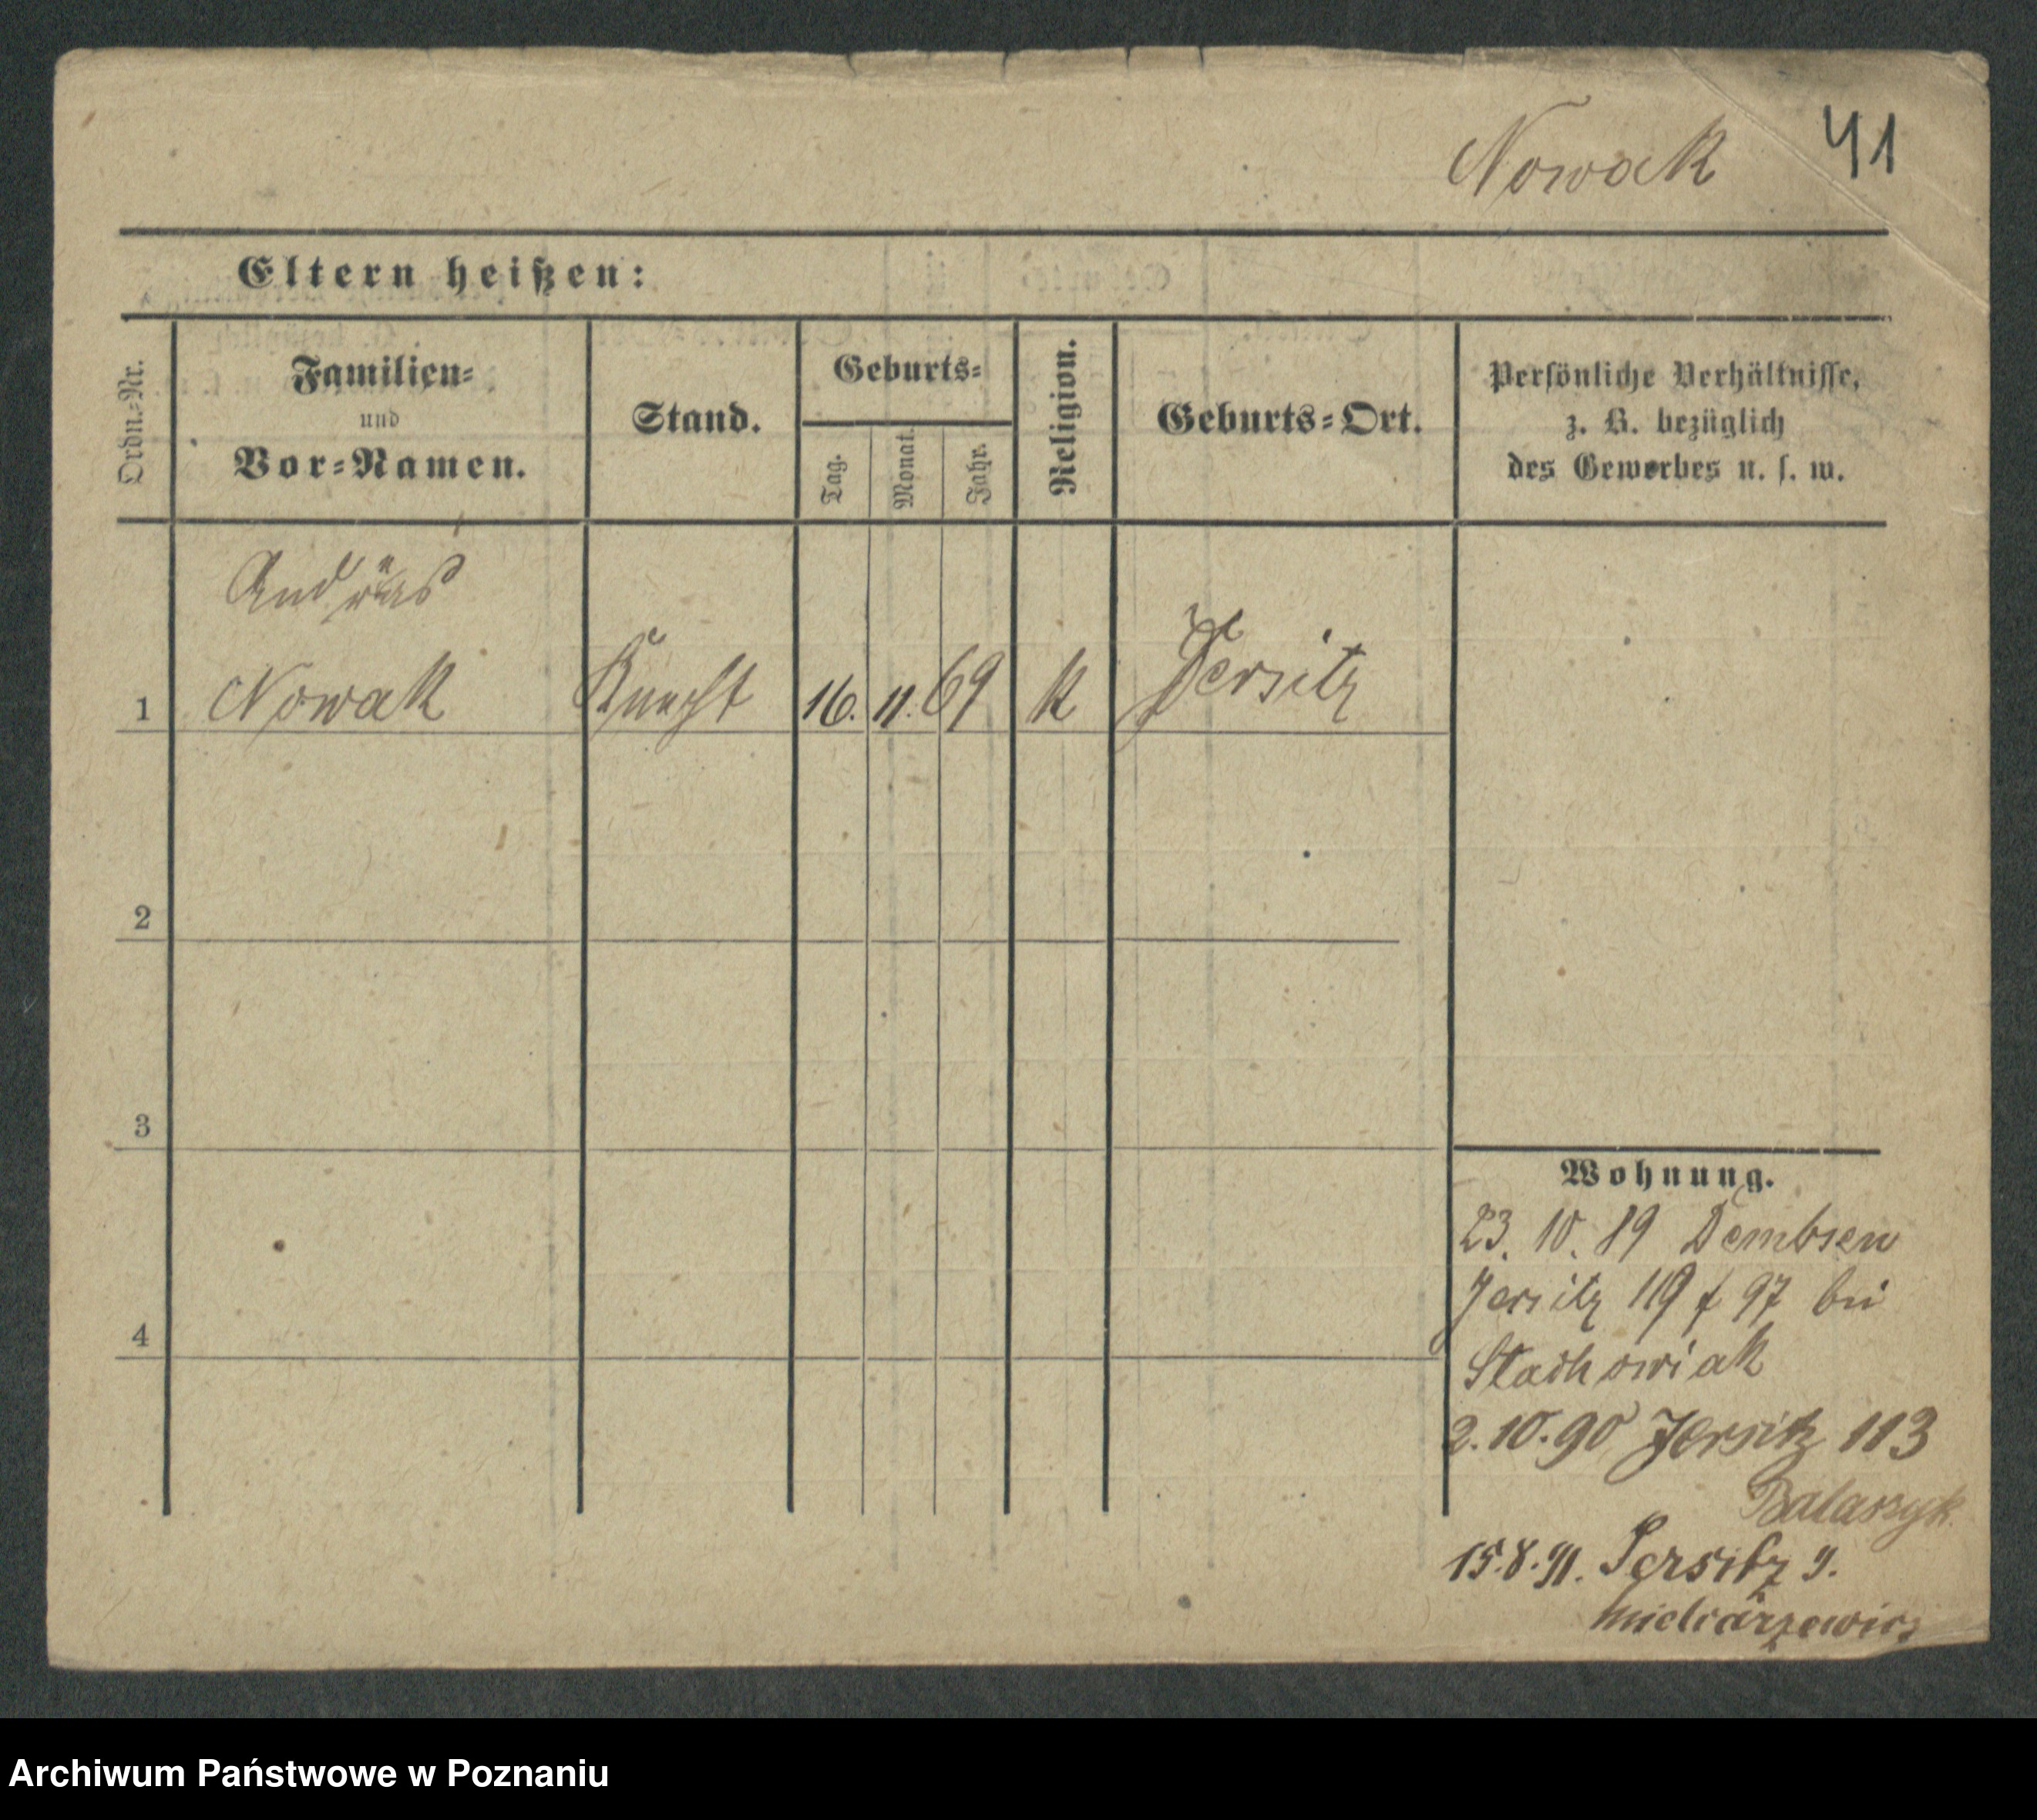 Nowak 41
Eltern heißen:
Ordn.-Nr.
Familien-
und
Vor-Namen.
Stand.
Geburts-
Tag.
Monat.
Jahr.
Religion.
Geburts-Ort.
Persönliche Verhältnisse,
z. B. bezüglich
des Gewerbes u. s. w.
Andreas
1 Nowak Knecht 16. 11. 69 k Jersitz
2
3
4
Wohnung.
23. 10. 89 Dembsen
Jersitz 119 f 97 bei
Stachowiak
2. 10. 90 Jersitz 113
Balaszyk
15. 8. 91. Jersitz 9.